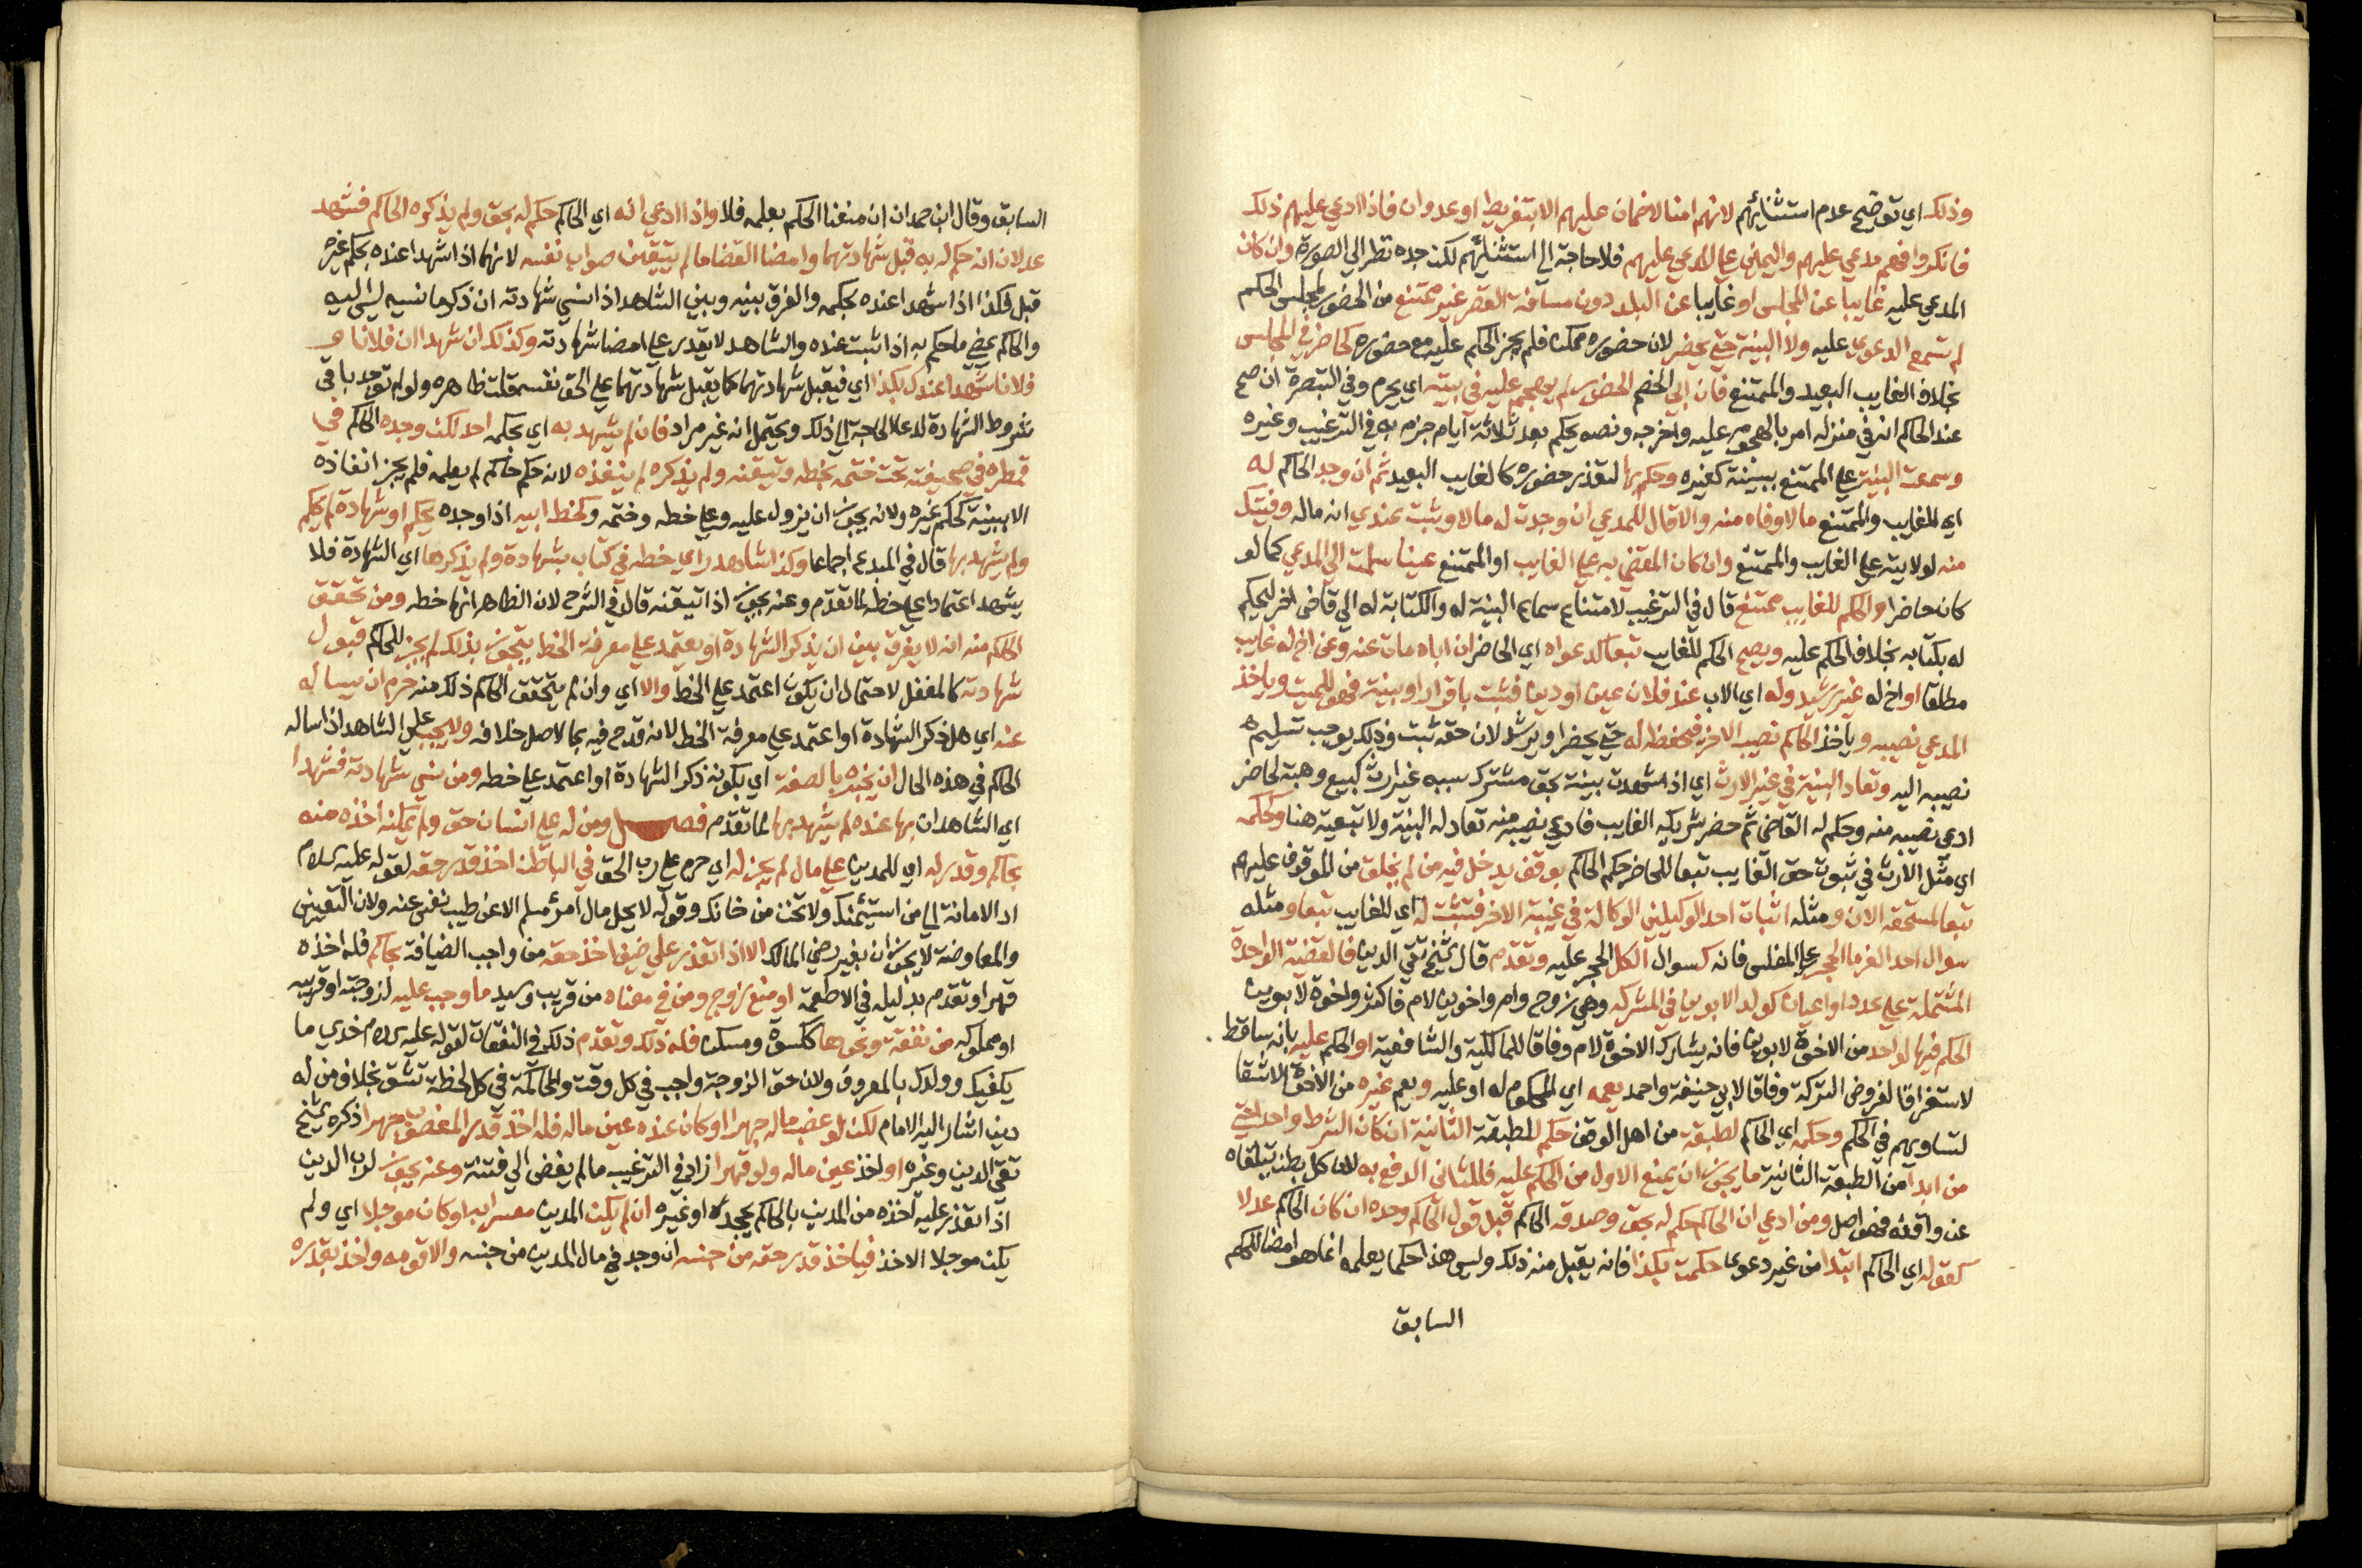 وذلك اي توضيح عدم استثنائهم لانهم امنا لا ضمان عليهم الا بتفريط او عدوان فاذا ادعي عليهم ذلك
فانكروا فهم مدعي عليهم واليمين علي المدعي عليهم فلا حاجة الي استثنائهم لكن جده نظر الي الصورة وان كان
المدعي عليه غايبا عن المجلس او غايبا عن البلد دون مسافة القصر غير ممتنع من الحضور لمجلس الحكم
لم تسمع الدعوي عليه ولا البينة حتي يحضر لان حضوره ممكن فلم يجز الحكم عليه مع حضوره كحاضر في المجلس
بخلاف الغايب البعيد والممتنع فان ابي الخصم الحضور لم يهجم عليه في بيته اي يحرم وفي التبصرة ان صح
عند الحاكم انه في منزله امر بالهجوم عليه واخرجه ونصه يحكم بعد ثلاثة ايام جزم به في الترغيب وغيره
وسمعت البينة علي الممتنع ببينة كغيره وحكم بها لتعذر حضوره كالغايب البعيد ثم ان وجد الحاكم له
اي للغايب والممتنع مالا وفاه منه والا قال للمدعي ان وجدت له مالا وثبت عندي انه ماله وفيتك
منه لولايته علي الغايب والممتنع وان كان المقضي به علي الغايب او الممتنع عينا سلمت الي المدعي كما لو
كان حاضرا والحكم للغايب ممتنع قال في الترغيب لامتناع سماع البينة له والكتابة له الي قاضي اخر ليحكم
له بكتابه بخلاف الحكم عليه ويصح الحكم للغايب تبعا كدعواه اي الحاضر ان اباه مات عنه وعن اخ له غايب
مطلقا او اخ له غير رشيد وله اي الاب عند فلان عين او دين فثبت باقرار او بينة فهو للميت وياخذ
المدعي نصيبه وياخذ الحاكم نصيب الاخر فيحفظه له حتي يحضر او يرشد لان حقه ثبت وذلك يوجب تسليم
نصيبه اليه وتعاد البينة في غير الارث اي اذا شهدت بينة بحق مشترك سببه غير ارث كبيع وهبة لحاضر
ادعي نصيبه منه وحكم له القاضي ثم حضر شريكه الغايب فادعي نصيبه منه تعاد له البينة ولا تبعية هنا وحكمه
اي مثل الارث في ثبوت حق الغايب تبعا للحاضر حكم الحاكم بوقف يدخل فيه من لم يخلق من الموقوف عليهم
تبعا لمستحقه الان ومثله اثبات احد الوكيلين الوكالة في غيبة الاخر فتثبت له اي للغايب تبعا ومثله
سوال احد الغرما الحجر علي المفلس فانه كسوال الكل الحجر عليه وتقدم قال الشيخ تقي الدين فالقضية الواحدة
المشتملة علي عدد او اعيان كولد الابوين في المشركة وهي زوج وام واخوين لام فاكثر واخوة لابوين
الحكم فيها لواحد من الاخوة لابوين فانه يشارك الاخوة لام وفاقا للمالكية والشافعية او الحكم عليه بانه ساقط
لاستغراق الفروض التركة وفاقا لابي حنيفة واحمد يعمه اي المحكوم له او عليه ويعم غيره من الاخوة الاشقا
لتساويهم في الحكم وحكمه اي الحاكم لطبقة من اهل الوقف حكم للطبقة الثانية ان كان الشرط واحدا حتي
من ابدا من الطبقة الثانية ما يجوز ان يمنع الاول من الحكم عليه فللثاني الدفع به لان كل بطن يتلقاه
عن واقفه فهو اصل ومن ادعي ان الحاكم حكم له بحق وصدقه الحاكم قبل قول الحاكم وحده ان كان الحاكم عدلا
كقوله اي الحاكم ابتدا من غير دعوي حكمت بكذا فانه يقبل منه ذلك وليس هذا حكما بعلمه انما هو امضا للحكم
السابق
السابق وقال ابن حمدان ان منعنا الحكم بعلمه فلا واذا ادعي انه اي الحاكم حكم له بحق ولم يذكره الحاكم فشهد
عدلان انه حكم له به قبل شهادتهما وامضا القضا ما لم يتيقن صواب نفسه لانهما اذا شهدا عنده بحكم غيره
قبل فكذا اذا شهدا عنده بحكمه والفرق بينه وبين الشاهد اذا نسي شهادته ان ذكر ما نسيه ليس اليه
والحاكم يمضي ما حكم به اذا ثبت عنده والشاهد لا يقدر علي امضا شهادته وكذلك ان شهدا ان فلانا و
فلانا شهدا عندك بكذا اي فيقبل شهادتهما كما يقبل شهادتهما علي الحق نفسه قلت ظاهره ولو لم توجد باقي
شروط الشهادة لدعا الحاجة الي ذلك ويحتمل انه غير مراد فان لم يشهد به اي بحكمه احد لكن وجده الحاكم في
قمطره في صحيفة تحت ختمه بخطه وتيقنه ولم يذكره لم ينفذه لانه حكم حاكم لم يعلمه فلم يجز انفاذه
الا ببينة كحكم غيره ولانه يجوز ان يزور عليه وعلي خطه وختمه وكخط ابيه اذا وجده بحكم او شهادة لم يحكم
ولم يشهد بها قال في المبدع اجماعا وكذا شاهد راي خطه في كتاب بشهادة ولم يذكرها اي الشهادة فلا
يشهد اعتمادا علي خطه لما تقدم وعنه يجوز اذا تيقنه قال في الشرح لان الظاهر انها خطه ومن تحقق
الحاكم منه انه لا يفرق بين ان يذكر الشهادة او يعتمد علي معرفة الخط يتجوز بذلك لم يجز للحاكم قبول
شهادته كالمغفل لاحتمال ان يكون اعتمد علي الخط والا اي وان لم يتحقق الحاكم ذلك منه حرم ان يساله
عنه اي هل ذكر الشهادة او اعتمد علي معرفة الخط لانه قدح فيه بما الاصل خلافه ولا يجب علي الشاهد اذا ساله
الحاكم في هذه الحال ان يخبره بالصفة اي بكونه ذكر الشهادة او اعتمد علي خطه ومن نسي شهادته فشهدا
اي الشاهدان بها عنده لم يشهد بها لما تقدم فصل ومن له علي انسان حق ولم يمكنه اخذه منه
بحاكم وقدر له اي للمدين علي مال لم يجز له اي حرم علي رب الحق في الباطن اخذ قدر حقه لقوله عليه السلام
اد الامانة الي من ائتمنك ولا تخن من خانك وقوله لا يحل مال امرئ مسلم الا عن طيب نفس عنه ولان التعيين
والمعاوضة لا يجوزان بغير رضي المالك الا اذا تعذر علي ضيف اخذ حقه من واجب الضيافة بحاكم فله اخذه
قهرا وتقدم بدليله في الاطعمة او منع زوج ومن في معناه من قريب وسيد ما وجب عليه لزوجته او قريبه
او مملوكه من نفقة ونحوها ككسوة ومسكن فله ذلك وتقدم ذلك في النفقات لقوله عليه السلام خذي ما
يكفيك وولدك بالمعروف ولان حق الزوجة واجب في كل وقت والمحاكمة في كل لحظة تشق بخلاف من له
دين اشار اليه الامام لكن لو غصب ماله جهرا او كان عنده عين ماله فله اخذ قدر المغصوب جهرا ذكره الشيخ
تقي الدين وغيره او اخذ عين ماله ولو قهرا زاد في الترغيب ما لم يفض الي فتنة وعنه يجوز لرب الدين
اذا تعذر عليه اخذه من المدين بالحاكم بجحده او غيره ان لم يكن المدين معسرا به او كان موجلا اي ولم
يكن موجلا الاخذ فياخذ قدر حقه من جنسه ان وجد في مال المدين من جنسه والا قومه واخذ بقدره